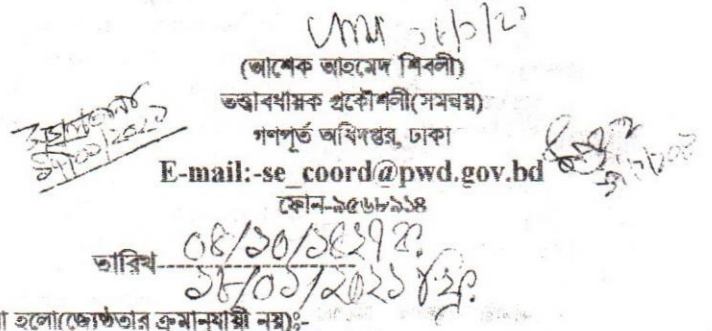 ১৮/১/২১
(আশেক আহমেদ শিবলী)
তত্ত্বাবধায়ক প্রকৌশলী(সমন্বয়)
গণপূর্ত অধিদপ্তর, ঢাকা
E-mail:-se_coord@pwd.gov.bd
ফোন-৯৫৬৮৯১৪
তারিখ------ ০৪/১০/১৪২৭ ব.
১৮/০১/২০২১ খ্রি.
হলো(জ্যেষ্ঠতার ক্রমানুযায়ী নয়):-